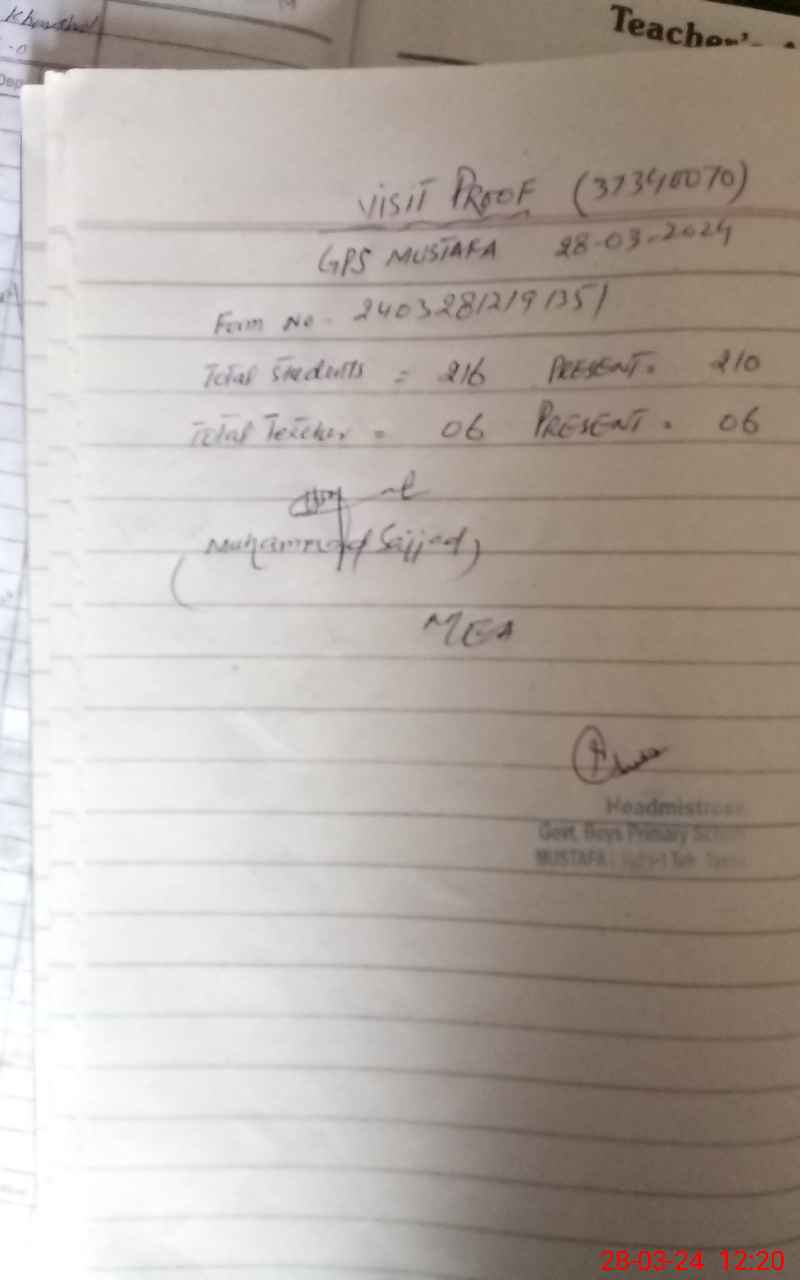 Khurshid
Teacher's
Dep
VISIT PROOF (37340070)
GPS MUSTAFA 28-03-2024
Form No - 24032812191351
Total Students = 216 PRESENT = 210
Total Teacher = 06 PRESENT = 06
(Muhammad Sajjad)
MEA
Headmistress
Govt. Boys Primary School
MUSTAFA
28-03-24 12:20